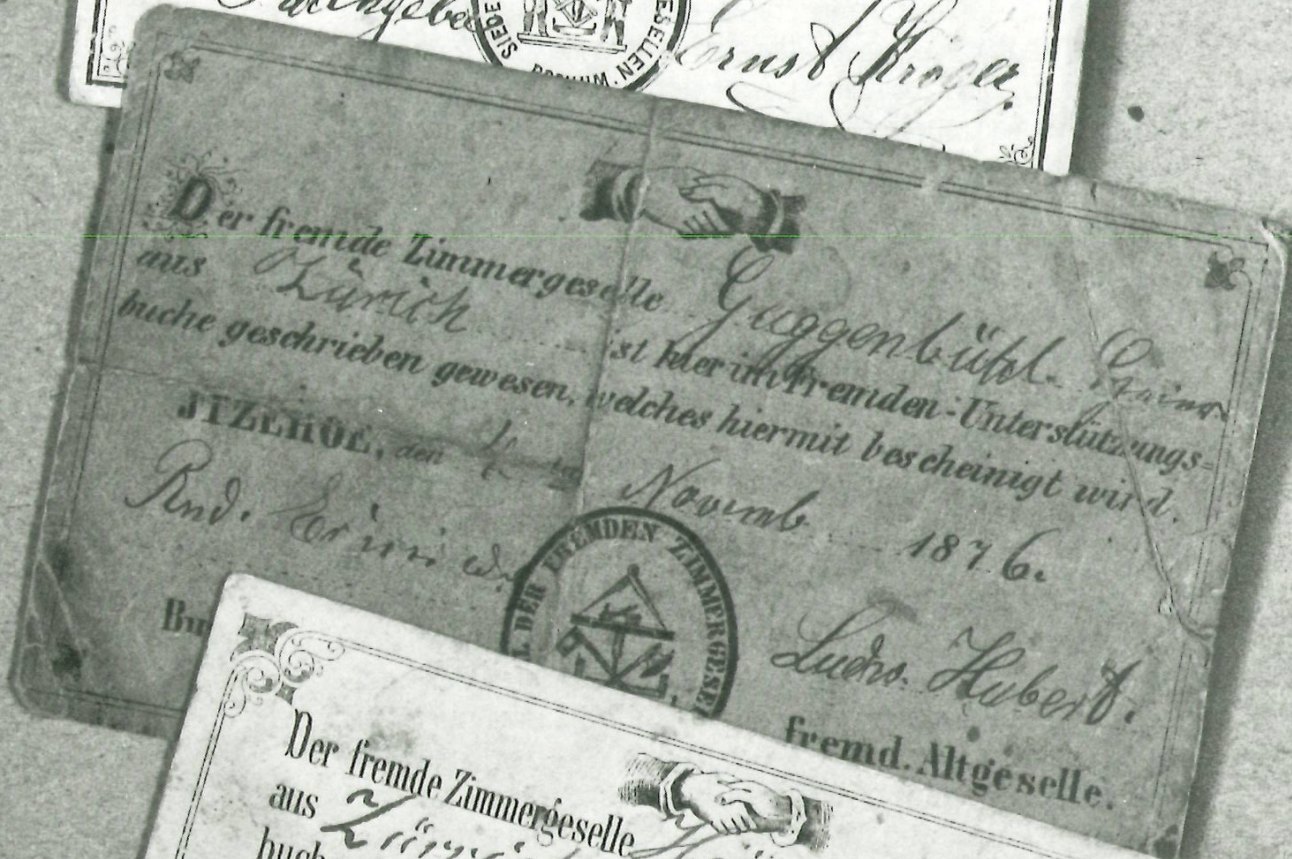 SIEDE
ESELLEN
Ernst Kröger.
Der fremde Zimmergeselle Guggenbühl.
aus Zürich ist hier im Fremden-Unterstützungs=
buche geschrieben gewesen, welches hiermit bescheinigt wird.
JTZEHOE, den 4 Novemb 1876.
Rud.
DER FREMDEN ZIMMERGESE
Ludw. Hubert.
Bu
fremd. Altgeselle.
Der fremde Zimmergeselle
aus Züri
buch